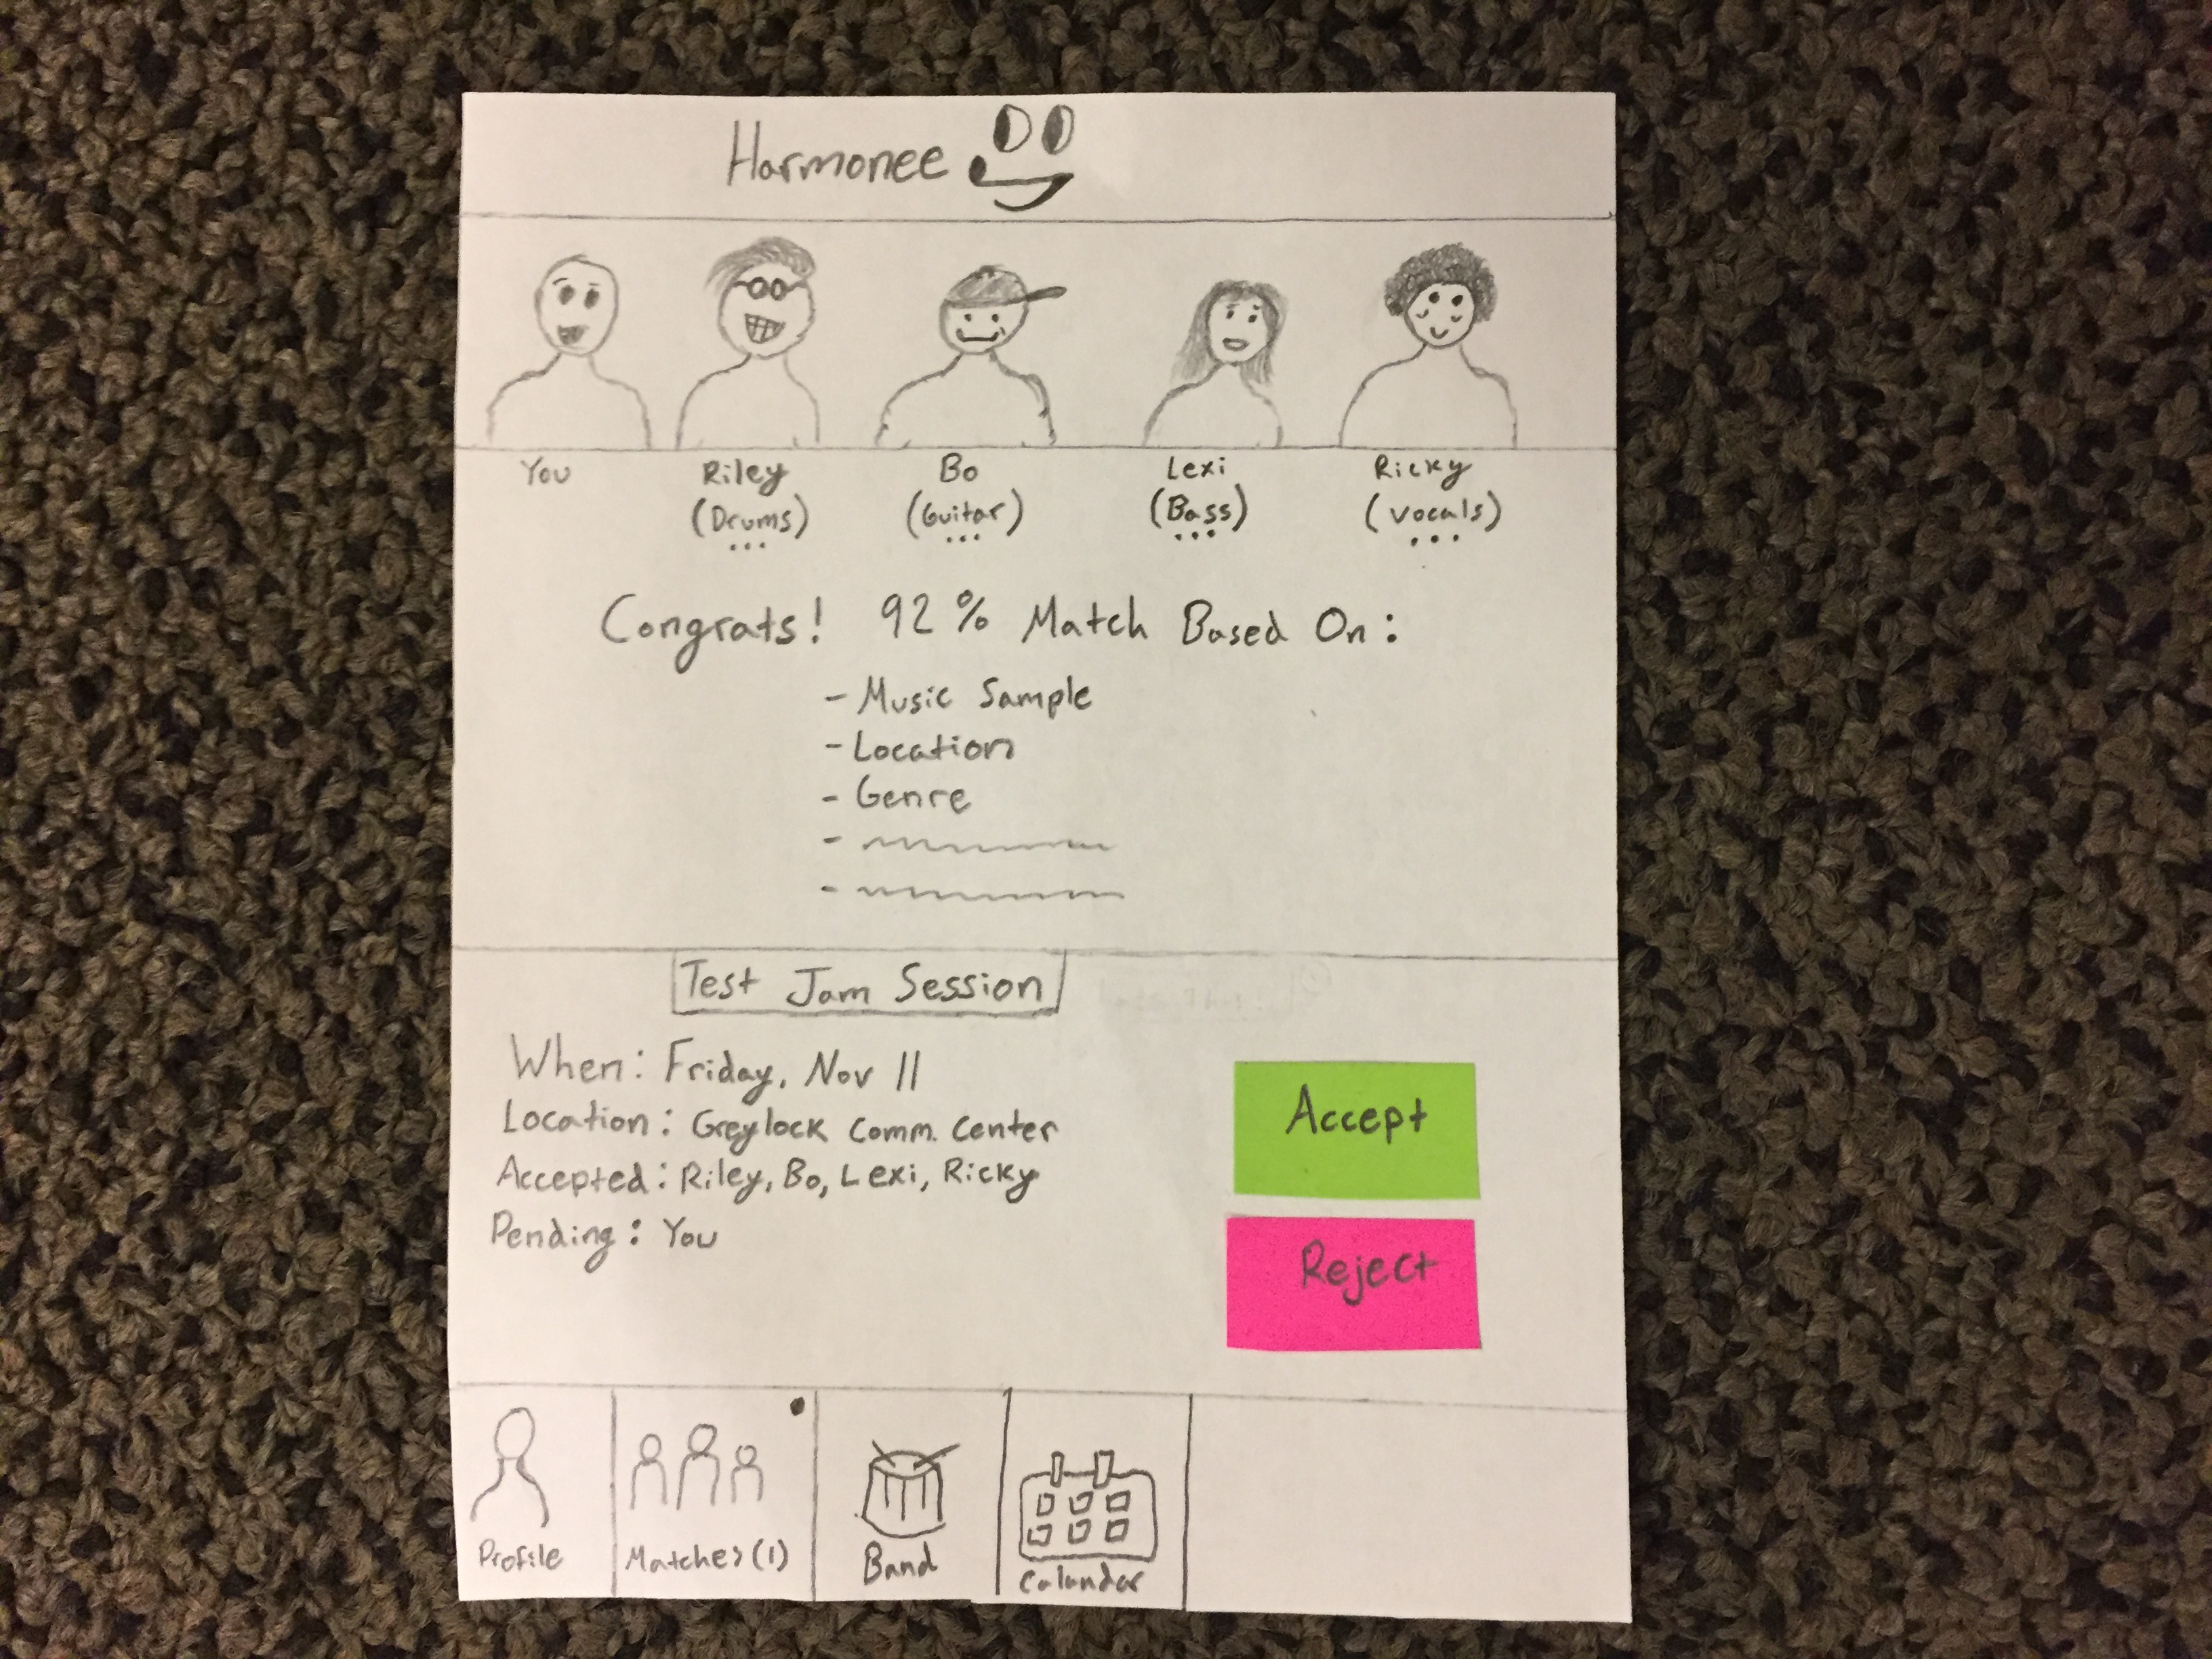 Harmonee
You
Riley
(Drums)
...
Bo
(Guitar)
...
Lexi
(Bass)
...
Ricky
(vocals)
...
Congrats! 92% Match Based On:
- Music Sample
- Location
- Genre
-
-
Test Jam Session
When: Friday, Nov 11
Location: Greylock Comm. Center
Accepted: Riley, Bo, Lexi, Ricky
Pending: You
Accept
Reject
Profile
Matches(1)
Band
Calandar